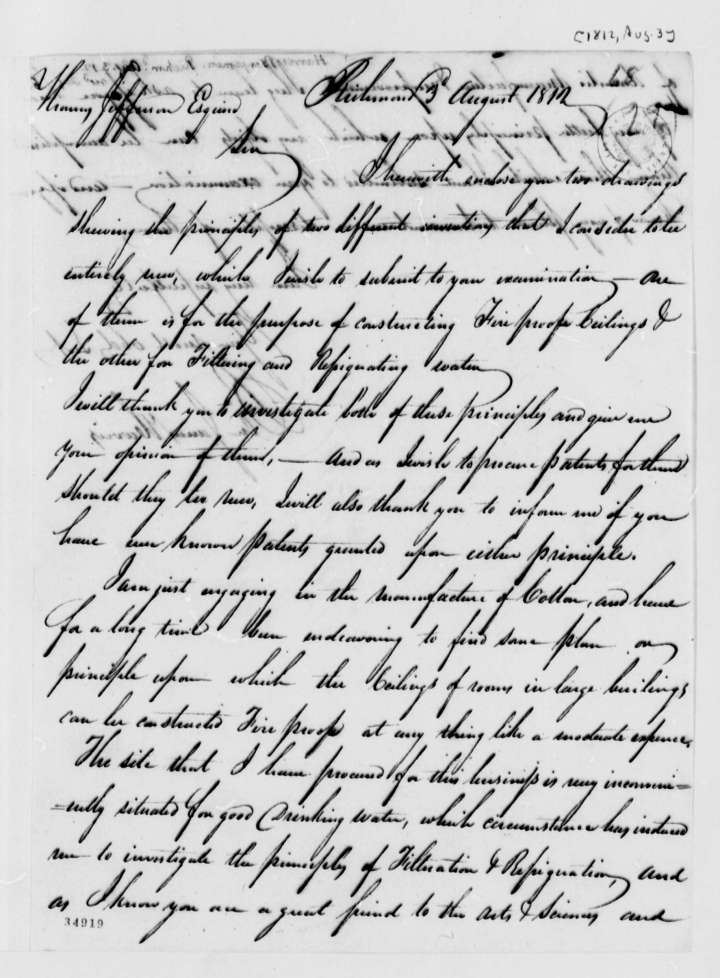 [1812, Aug. 3]
Thomas Jefferson Esquire Richmond 3d August 1812
Sir
I herewith enclose you two drawings
shewing the principles of two different inventions that I consider to be
entirely new, which I wish to submit to your examination — one
of them is for the purpose of constructing Fire proof Ceilings &
the other for Filtering and Refrigerating water
I will thank you to investigate both of these principles and give me
your opinion of them, — and as I wish to procure patents for them
should they be new, I will also thank you to inform me if you
have ever known patents granted upon either principle.
I am just engaging in the manufacture of Cotton, and have
for a long time been endeavoring to find some plan or
principle upon which the Ceilings of rooms in large buildings
can be constructed Fire proof at any thing like a moderate expence,
The site that I have procured for this business is very inconveni=
=ently situated for good Drinking water, which circumstance has induced
me to investigate the principles of Filtration & Refrigeration, and
as I know you are a great friend to the arts & Sciences and
34919